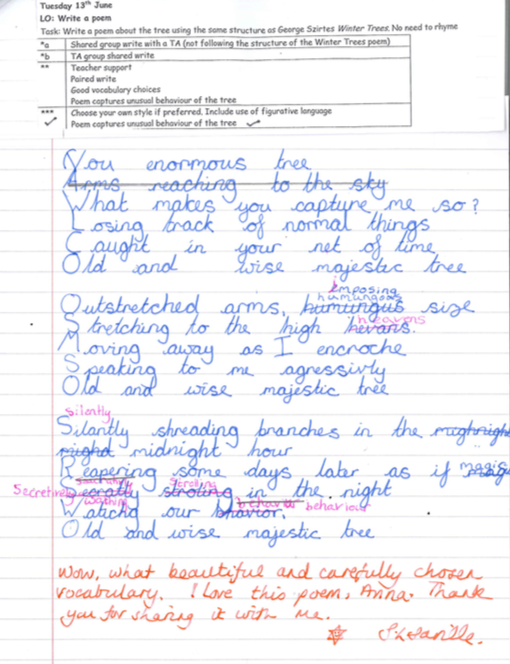 Tuesday 13th June
LO: Write a poem
Task: Write a poem about the tree using the same structure as George Szirtes Winter Trees. No need to rhyme
*a Shared group write with a TA (not following the structure of the Winter Trees poem)
*b TA group shared write
** Teacher support
Paired write
Good vocabulary choices
Poem captures unusual behaviour of the tree
*** Choose your own style if preferred. Include use of figurative language
✓ Poem captures unusual behaviour of the tree ✓
You enormous tree
Arms reaching to the sky
What makes you capture me so?
Losing track of normal things
Caught in your net of time
Old and wise majestic tree
imposing
humungous
Outstretched arms, humungus size
heavens
Stretching to the high hevans.
Moving away as I encroche
Speaking to me agressivly
Old and wise majestic tree
silently
Silantly shreading branches in the
midnight hour
Reapering some days later as if magic
Secretively strolling
Secratly stroling in the night
watching behaviour behaviour
Watichd our bhavior.
Old and wise majestic tree
Wow, what beautiful and carefully chosen
vocabulary. I love this poem, Anna. Thank
you for sharing it with me.